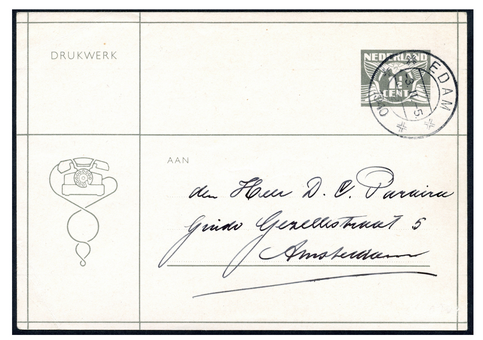 DRUKWERK
NEDERLAND
CENT
EDAM
AAN
den Heer D. V. Pareira
Guido Gezellestraat 5
Amsterdam